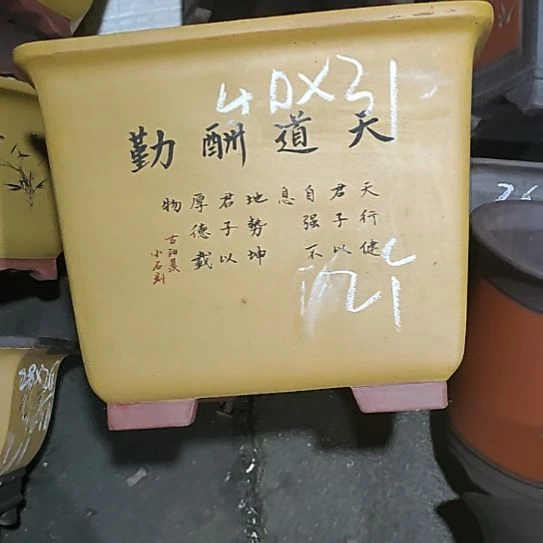 40X31
天道酬勤
天行健
君子以
自强不
息
地势坤
君子以
厚德载
物
古阳羡
小石刻